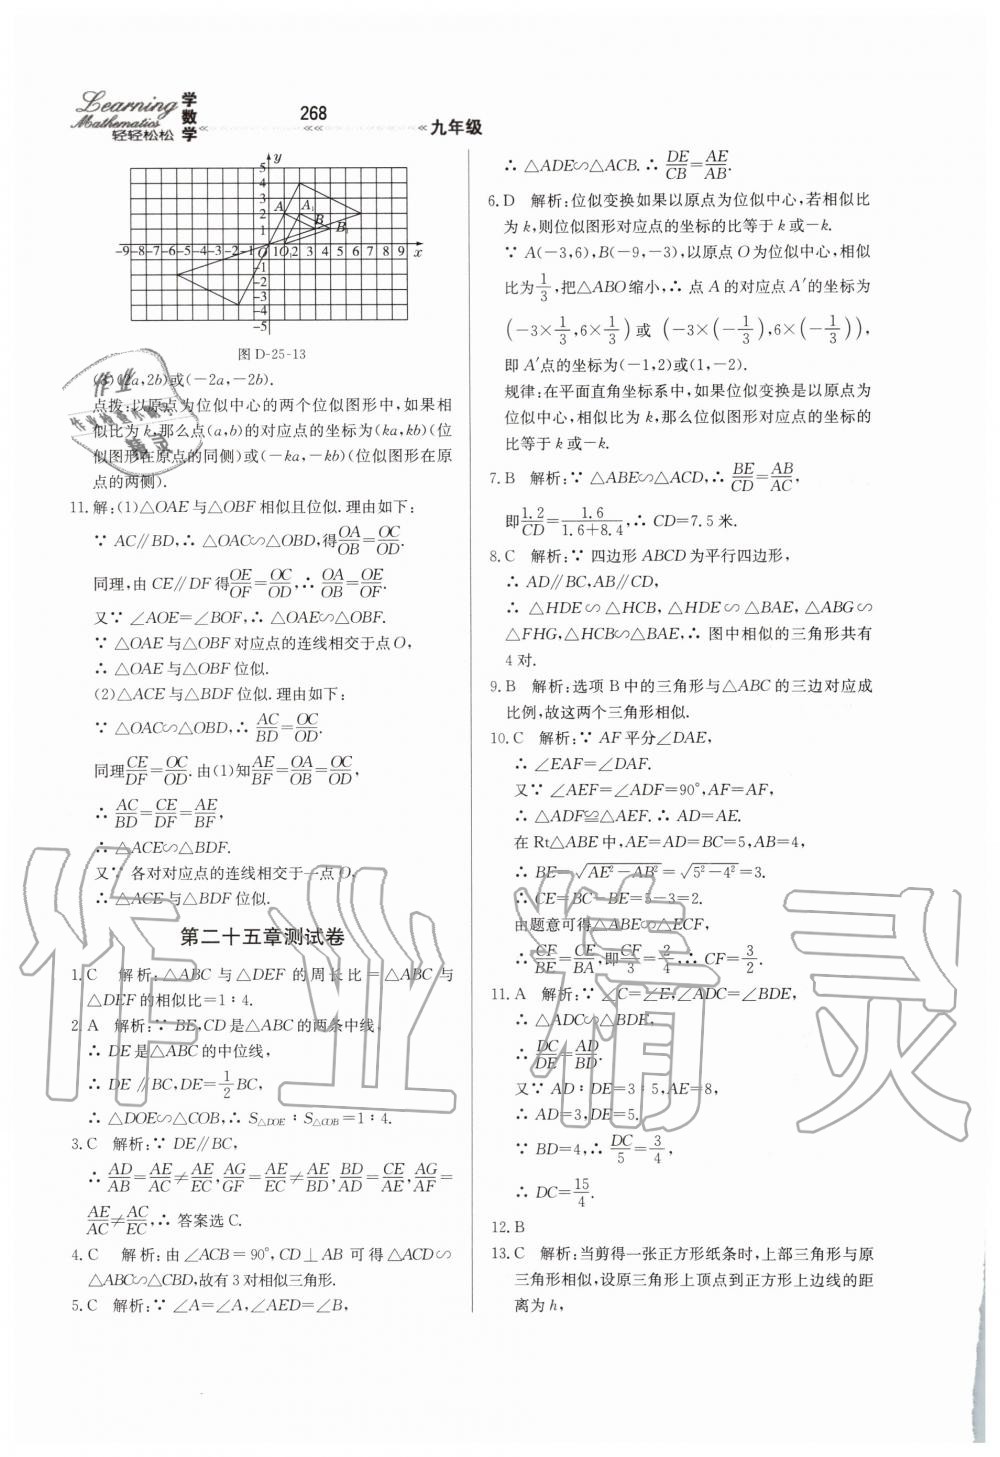 Learning 学数学
Mathematics
轻轻松松
268
九年级
y
5
4
3
2
1
-9-8-7-6-5-4-3-2-1 O 1 O₁ 2 3 4 5 6 7 8 9 x
A A₁ B B₁
-1
-2
-3
-4
-5
图 D-25-13
(3)(2a,2b)或(-2a,-2b).
点拨:以原点为位似中心的两个位似图形中,如果相
似比为 k,那么点(a,b)的对应点的坐标为(ka,kb)(位
似图形在原点的同侧)或(-ka,-kb)(位似图形在原
点的两侧).
11.解:(1)△OAE与△OBF相似且位似.理由如下:
∵ AC∥BD,∴ △OAC∽△OBD,得OA/OB=OC/OD.
同理,由 CE∥DF 得OE/OF=OC/OD,∴ OA/OB=OE/OF.
又∵ ∠AOE=∠BOF,∴ △OAE∽△OBF.
∵ △OAE与△OBF对应点的连线相交于点O,
∴ △OAE与△OBF位似.
(2)△ACE与△BDF位似.理由如下:
∵ △OAC∽△OBD,∴ AC/BD=OC/OD.
同理CE/DF=OC/OD.由(1)知AE/BF=OA/OB=OC/OD,
∴ AC/BD=CE/DF=AE/BF,
∴ △ACE∽△BDF.
又∵ 各对对应点的连线相交于一点O,
∴ △ACE与△BDF位似.
第二十五章测试卷
1.C 解析:△ABC 与△DEF 的周长比=△ABC 与
△DEF的相似比=1∶4.
2.A 解析:∵ BE,CD是△ABC的两条中线,
∴ DE是△ABC的中位线,
∴ DE∥BC,DE=1/2BC,
∴ △DOE∽△COB,∴ S△DOE∶S△COB=1∶4.
3.C 解析:∵ DE∥BC,
∴ AD/AB=AE/AC≠AE/EC,AG/GF=AE/EC≠AE/BD,BD/AD=CE/AE,AG/AF=
AE/AC≠AC/EC,∴ 答案选C.
4.C 解析:由∠ACB=90°,CD⊥AB 可得△ACD∽
△ABC∽△CBD,故有3对相似三角形.
5.C 解析:∵ ∠A=∠A,∠AED=∠B,
∴ △ADE∽△ACB.∴ DE/CB=AE/AB.
6.D 解析:位似变换如果以原点为位似中心,若相似比
为 k,则位似图形对应点的坐标的比等于 k 或-k.
∵ A(-3,6),B(-9,-3),以原点O为位似中心,相似
比为1/3,把△ABO缩小,∴ 点A的对应点A′的坐标为
(-3×1/3,6×1/3)或(-3×(-1/3),6×(-1/3)),
即 A′点的坐标为(-1,2)或(1,-2).
规律:在平面直角坐标系中,如果位似变换是以原点为
位似中心,相似比为 k,那么位似图形对应点的坐标的
比等于 k 或-k.
7.B 解析:∵ △ABE∽△ACD,∴ BE/CD=AB/AC,
即1.2/CD=1.6/1.6+8.4,∴ CD=7.5米.
8.C 解析:∵ 四边形 ABCD 为平行四边形,
∴ AD∥BC,AB∥CD,
∴ △HDE∽△HCB,△HDE∽△BAE,△ABG∽
△FHG,△HCB∽△BAE,∴ 图中相似的三角形共有
4对.
9.B 解析:选项B中的三角形与△ABC的三边对应成
比例,故这两个三角形相似.
10.C 解析:∵ AF平分∠DAE,
∴ ∠EAF=∠DAF.
又∵ ∠AEF=∠ADF=90°,AF=AF,
∴ △ADF≌△AEF.∴ AD=AE.
在Rt△ABE中,AE=AD=BC=5,AB=4,
∴ BE=√(AE²-AB²)=√(5²-4²)=3.
∴ CE=BC-BE=5-3=2.
由题意可得△ABE∽△ECF,
∴ CF/BE=CE/BA,即CF/3=2/4,∴ CF=3/2.
11.A 解析:∵ ∠C=∠E,∠ADC=∠BDE,
∴ △ADC∽△BDE,
∴ DC/DE=AD/BD.
又∵ AD∶DE=3∶5,AE=8,
∴ AD=3,DE=5.
∵ BD=4,∴ DC/5=3/4,
∴ DC=15/4.
12.B
13.C 解析:当剪得一张正方形纸条时,上部三角形与原
三角形相似,设原三角形上顶点到正方形上边线的距
离为 h,
作业精灵